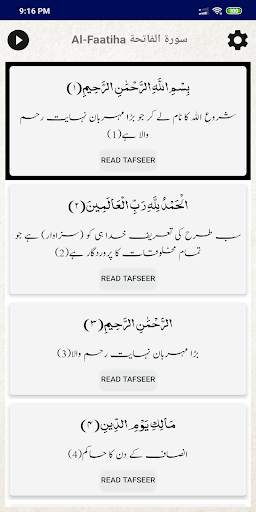 9:16 PM
Al-Faatiha سورة الفاتحة
بِسْمِ اللَّهِ الرَّحْمَٰنِ الرَّحِيمِ (۱)
شروع الله کا نام لے کر جو بڑا مہربان نہایت رحم
والا ہے(1)
READ TAFSEER
الْحَمْدُ لِلَّهِ رَبِّ الْعَالَمِينَ (۲)
سب طرح کی تعریف خدا ہی کو (سزاوار) ہے جو
تمام مخلوقات کا پروردگار ہے(2)
READ TAFSEER
الرَّحْمَٰنِ الرَّحِيمِ (۳)
بڑا مہربان نہایت رحم والا(3)
READ TAFSEER
مَالِكِ يَوْمِ الدِّينِ (۴)
انصاف کے دن کا حاکم(4)
READ TAFSEER